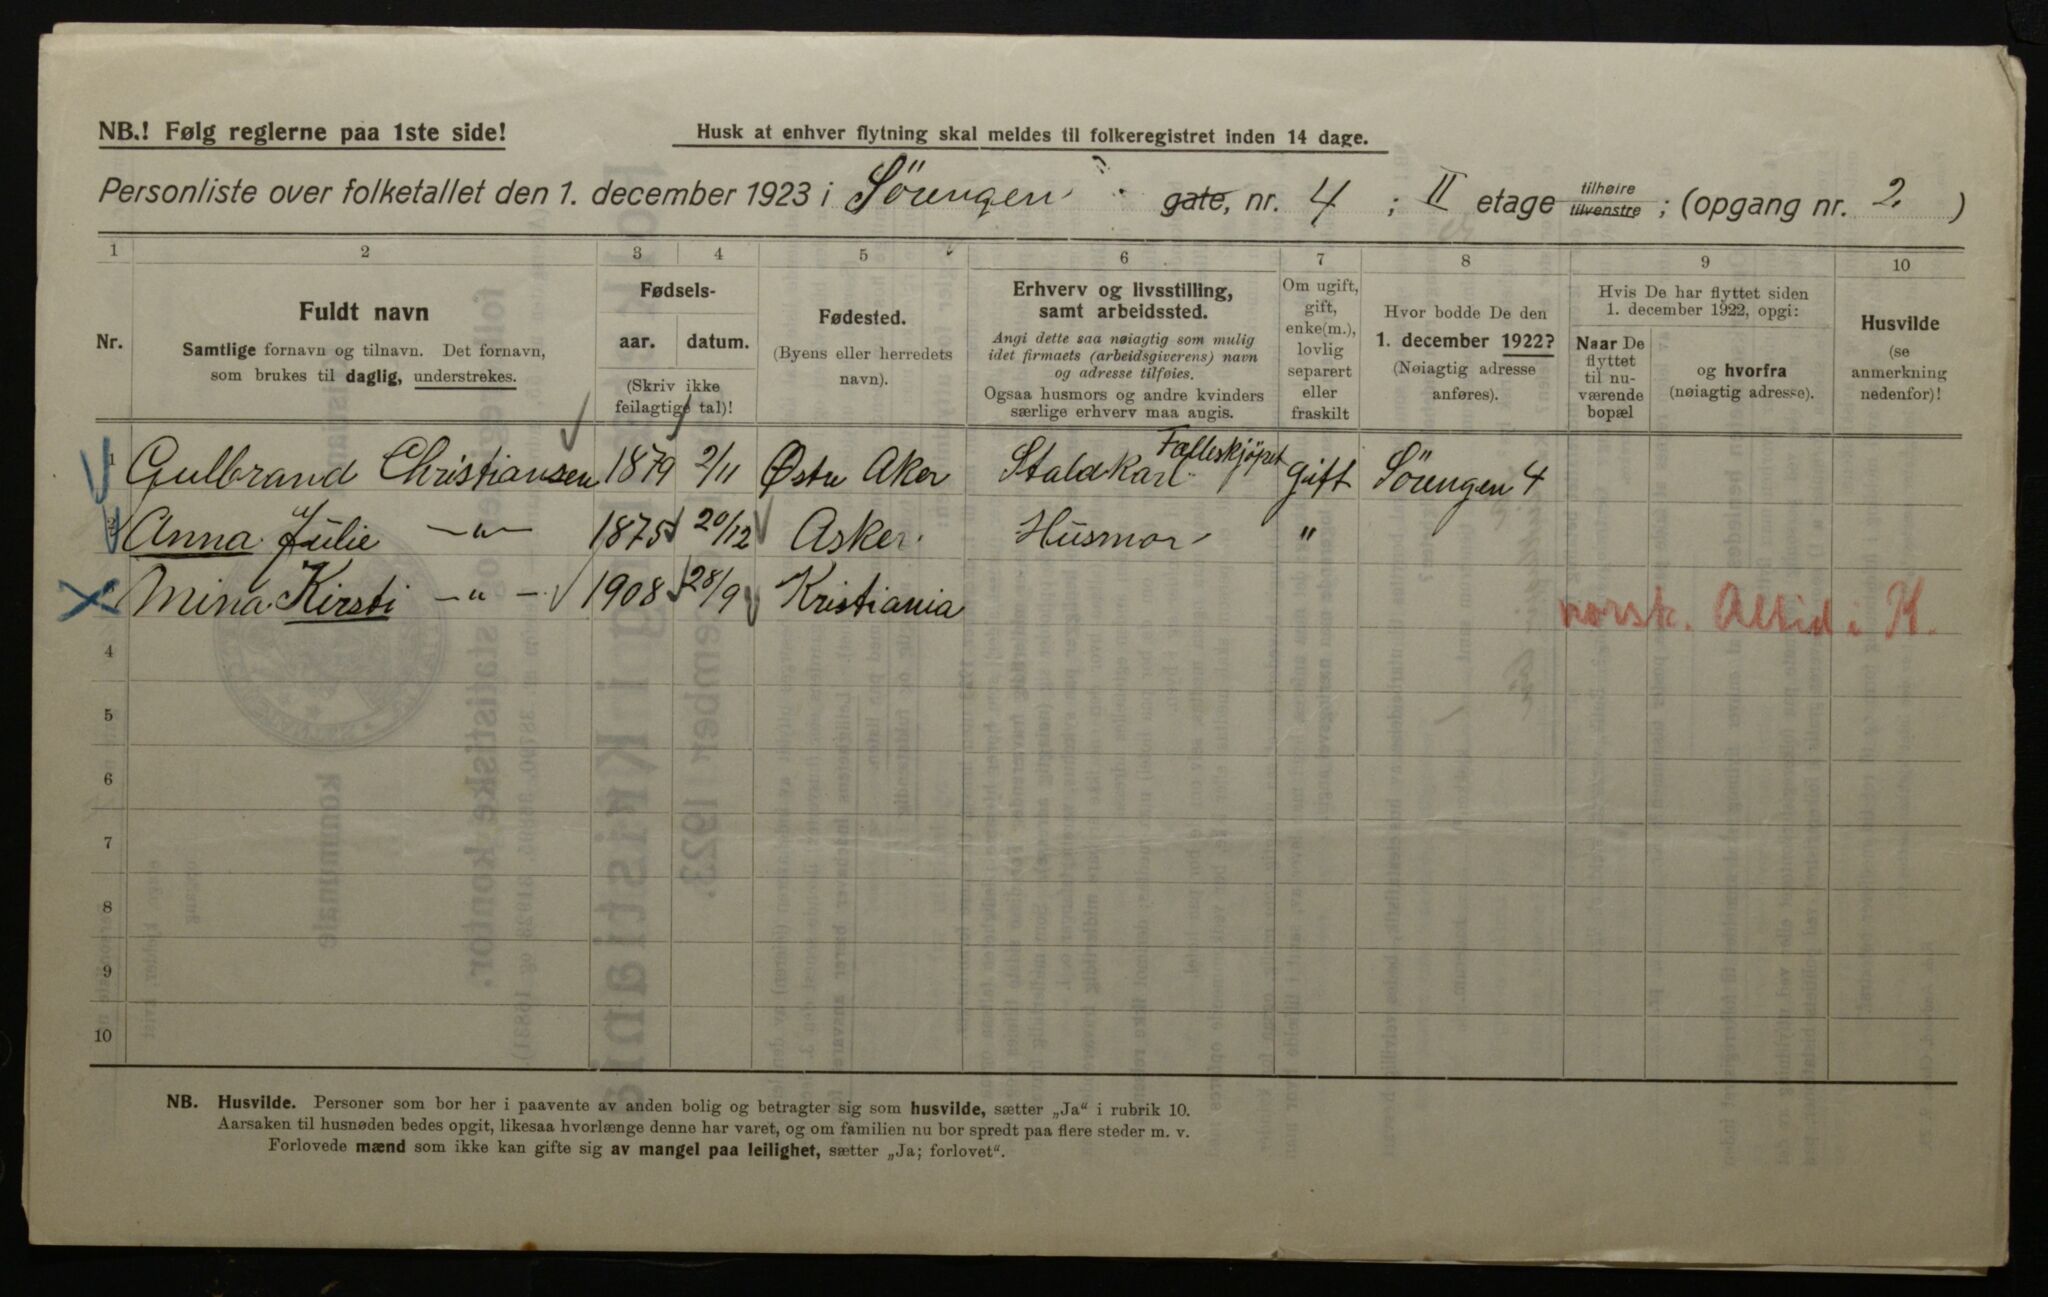 NB.! Følg reglerne paa 1ste side!
Husk at enhver flytning skal meldes til folkeregistret inden 14 dage.
Personliste over folketallet den 1. december 1923 i Sörengen gate, nr. 4 ; II etage tilhøire tilvenstre ; (opgang nr. 2. )
1 2 3 4 5 6 7 8 9 10
Nr.
Fuldt navn
Samtlige fornavn og tilnavn. Det fornavn,
som brukes til daglig, understrekes.
Fødsels-
aar. datum.
(Skriv ikke
feilagtige tal)!
Fødested.
(Byens eller herredets
navn).
Erhverv og livsstilling,
samt arbeidssted.
Angi dette saa nøiagtig som mulig
idet firmaets (arbeidsgiverens) navn
og adresse tilføies.
Ogsaa husmors og andre kvinders
særlige erhverv maa angis.
Om ugift,
gift,
enke(m.),
lovlig
separert
eller
fraskilt
Hvor bodde De den
1. december 1922?
(Nøiagtig adresse
anføres).
Hvis De har flyttet siden
1. december 1922, opgi:
Naar De
flyttet
til nu-
værende
bopæl
og hvorfra
(nøiagtig adresse).
Husvilde
(se
anmerkning
nedenfor)!
1 Gulbrand Christiansen 1879 2/11 Østre Aker Staldkarl Fælleskjöpet Gift Sörengen 4
2 Anna Julie —"— 1875 20/12 Asker. Husmor "
Mina Kirsti —"— 1908 28/9 Kristiania norsk. Altid i K.
4
5
6
7
8
9
10
NB. Husvilde. Personer som bor her i paavente av anden bolig og betragter sig som husvilde, sætter „Ja“ i rubrik 10.
Aarsaken til husnøden bedes opgit, likesaa hvorlænge denne har varet, og om familien nu bor spredt paa flere steder m. v.
Forlovede mænd som ikke kan gifte sig av mangel paa leilighet, sætter „Ja; forlovet“.